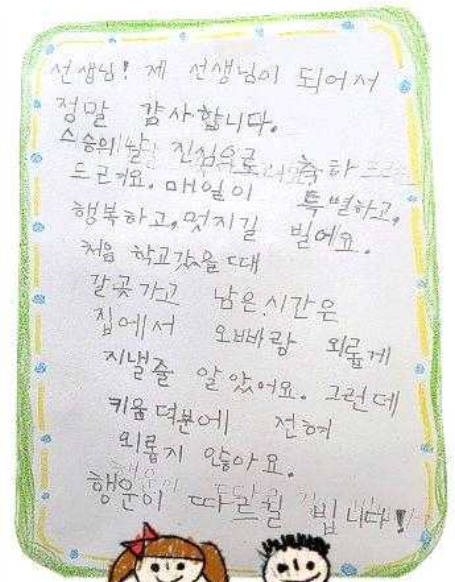 선생님! 제 선생님이 되어서
정말 감사합니다.
스승의 날 진심으로 축하
드려요. 매일이 특별하고,
행복하고, 멋지길 빌어요.
처음 학교갔을 때
갈곳가고 남은 시간은
집에서 오빠랑 외롭게
지낼줄 알았어요. 그런데
키움 덕분에 전혀
외롭지 않아요.
행운이 따르길 빕니다!